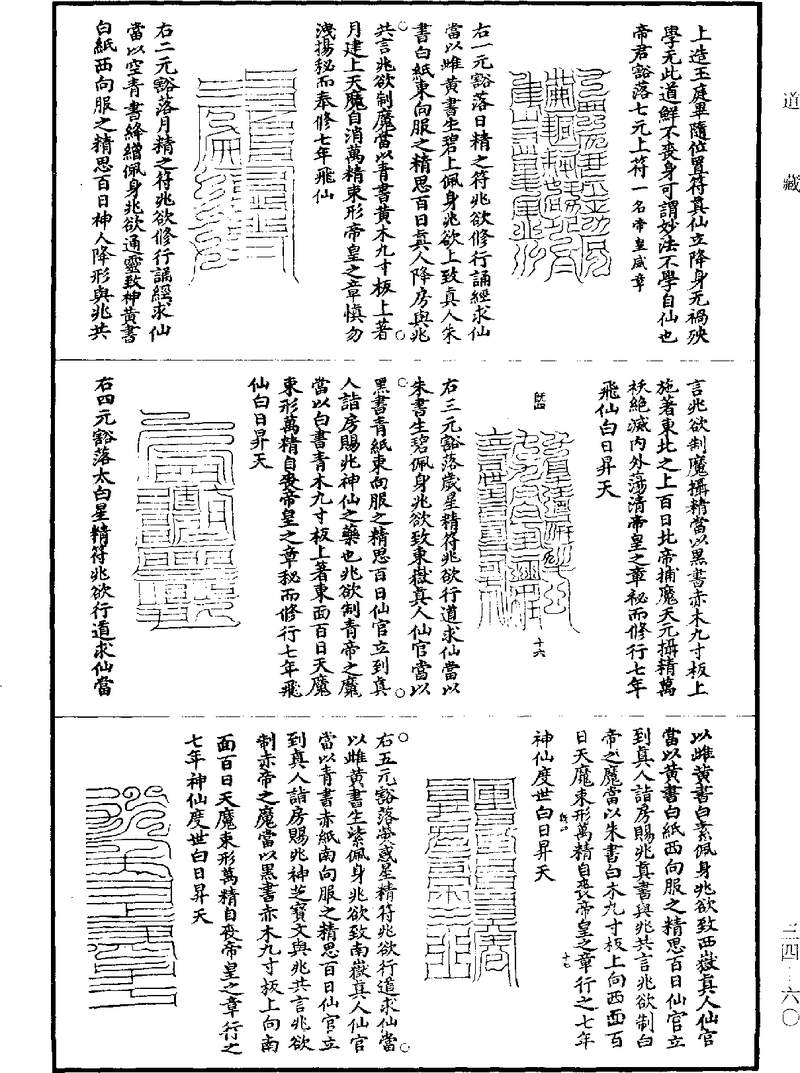 道藏
上造玉庭畢隨位置符真仙立降身无禍殃
學无此道鮮不喪身可謂妙法不學自仙也
帝君豁落七元上符一名帝皇威章
右一元豁落日精之符兆欲修行誦經求仙
當以雌黃書生碧上佩身兆欲上致真人朱
書白紙東向服之精思百日真人降房與兆
共言兆欲制魔當以青書黃木九寸板上著
月建上天魔自消萬精束形帝皇之章慎勿
洩揚秘而奉修七年飛仙
右二元豁落月精之符兆欲修行誦經求仙
當以空青書絳繒佩身兆欲通靈致神黃書
白紙西向服之精思百日神人降形與兆共
言兆欲制魔攝精當以黑書赤木九寸板上
施著東北之上百日北帝捕魔天元攝精萬
祅絕滅內外蕩清帝皇之章祕而修行七年
飛仙白日昇天
十六
右三元豁落歲星精符兆欲行道求仙當以
朱書生碧佩身兆欲致東嶽真人仙官當以
黑書青紙東向服之精思百日仙官立到真
人詣房賜兆神仙之藥也兆欲制青帝之魔
當以白書青木九寸板上著東面百日天魔
束形萬精自喪帝皇之章秘而修行七年飛
仙白日昇天
右四元豁落太白星精符兆欲行道求仙當
以雌黃書白素佩身兆欲致西嶽真人仙官
當以黃書白紙西向服之精思百日仙官立
到真人詣房賜兆真書與兆共言兆欲制白
帝之魔當以朱書白木九寸板上向西面百
日天魔束形萬精自喪帝皇之章行之七年
十七
神仙度世白日昇天
右五元豁落熒惑星精符兆欲行道求仙當
以雌黃書生紫佩身兆欲致南嶽真人仙官
當以青書赤紙南向服之精思百日仙官立
到真人詣房賜兆神芝寶文與兆共言兆欲
制赤帝之魔當以黑書赤木九寸板上向南
面百日天魔束形萬精自喪帝皇之章行之
七年神仙度世白日昇天
三四－六〇